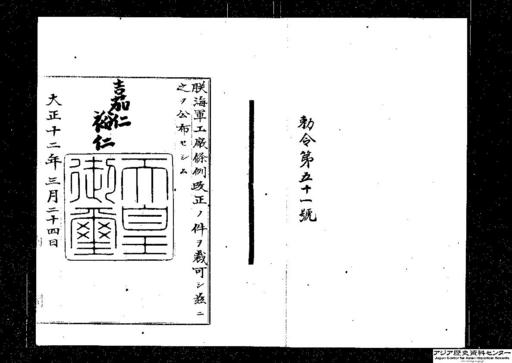 勅令第五十一號
朕海軍工廠條例改正ノ件ヲ裁可シ茲ニ
之ヲ公布セシム
嘉仁
裕仁
天皇
御璽
大正十二年三月二十四日
アジア歴史資料センター
Japan Center for Asian Historical Records